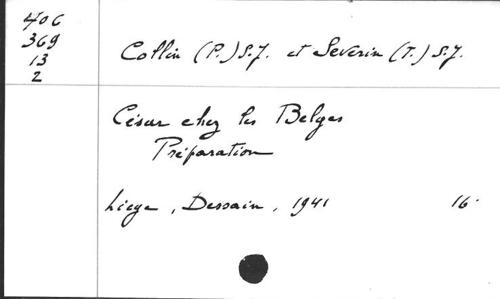 406
369
13
2
Collin (P.) S.J. et Severin (T.) S.J.
César chez les Belges
Préparation
Liege, Dessain, 1941 16°